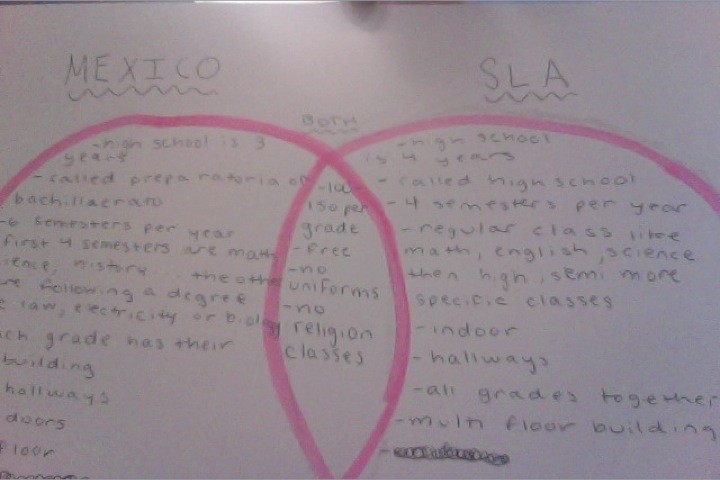 MEXICO
- high school is 3
years
- called preparatoria or
bachillaerato
-6 semesters per year
first 4 semesters are math
history the other
following a degree
law, electricity or biology
grade has their
building
hallways
doors
floor
BOTH
-100-
150 per
grade
- free
- no
uniforms
- no
religion
classes
SLA
- high school
is 4 years
- called high school
- 4 semesters per year
- regular class like
math, english, science
then high, semi more
specific classes
- indoor
- hallways
- all grades together
- multi floor building